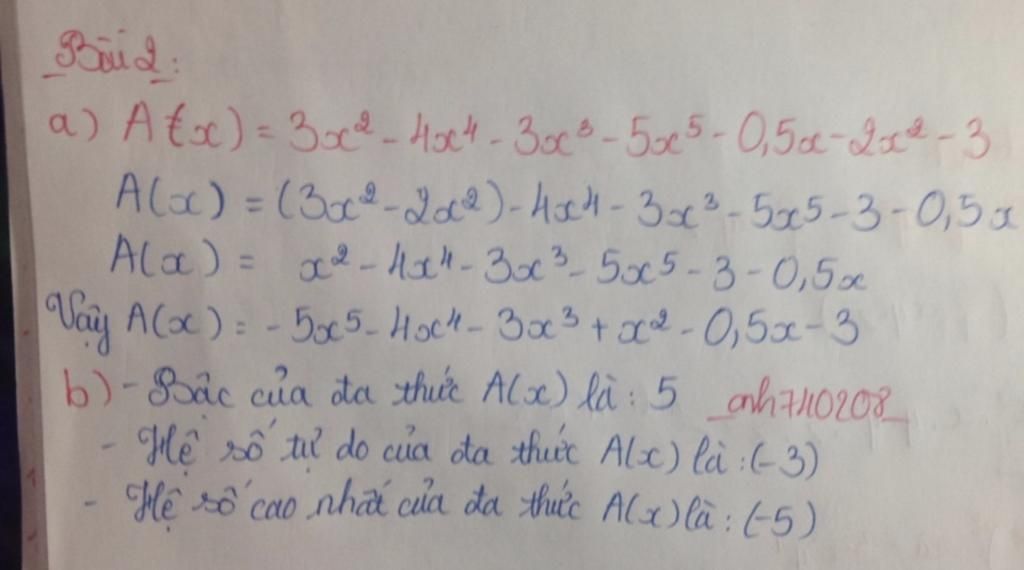 Bài 2:
a) A(x) = 3x² - 4x⁴ - 3x³ - 5x⁵ - 0,5x - 2x² - 3
A(x) = (3x² - 2x²) - 4x⁴ - 3x³ - 5x⁵ - 3 - 0,5x
A(x) = x² - 4x⁴ - 3x³ - 5x⁵ - 3 - 0,5x
Vậy A(x) = - 5x⁵ - 4x⁴ - 3x³ + x² - 0,5x - 3
b) - Bậc của đa thức A(x) là : 5 _anh740208_
- Hệ số tự do của đa thức A(x) là : (-3)
- Hệ số cao nhất của đa thức A(x) là : (-5)